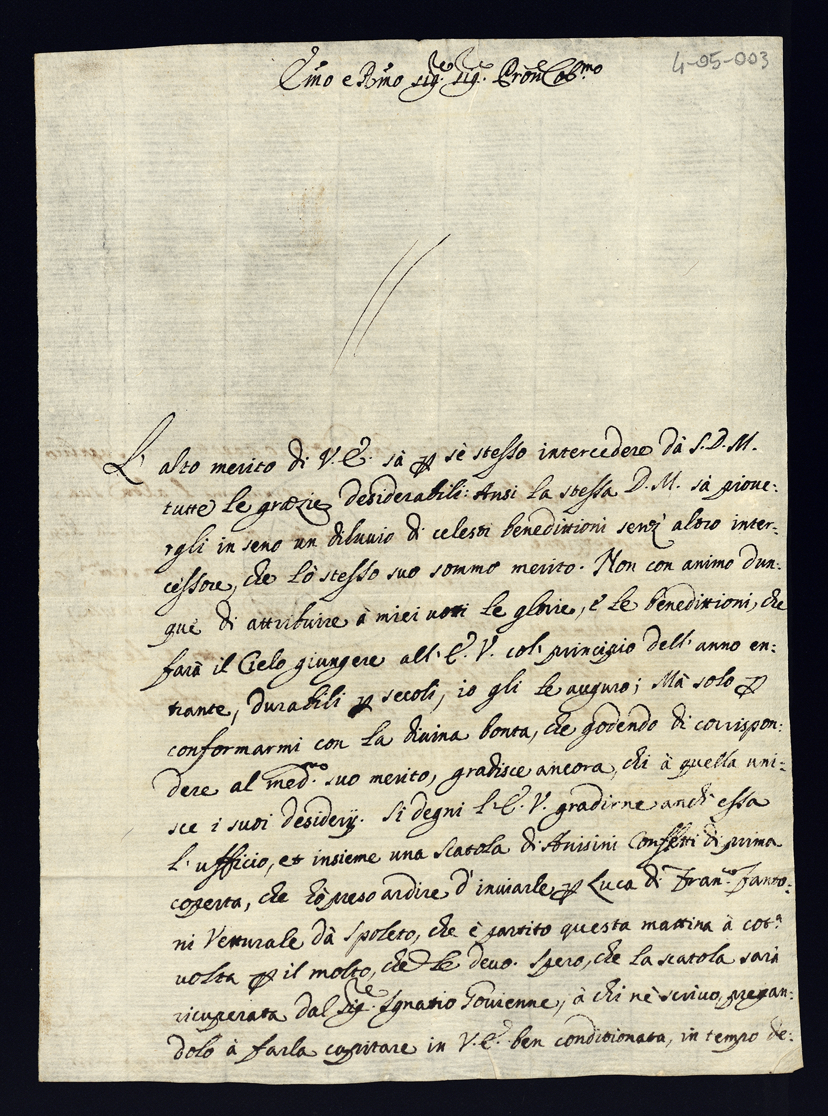 4-05-003
Em̃o e Rm̃o sig.re Sig.re Prõn Col.mo
L' alto merito di V. E. sà p sè stesso intercedere dà S. D. M.
tutte le grazie desiderabili: Ansi la stessa D. M. sà piove:
rgli in seno un diluvio di celesti benedittioni senz' altro inter:
cessore, che lò stesso suo sommo merito. Non con animo dun:
que di attribuire à miei voti le glorie, e le benedittioni, che
farà il Cielo giungere all' E. V. col' principio dell' anno en:
trante, durabili p secoli, io gli le auguro; Mà solo p
conformarmi con la divina bonta, che godendo di corrispon:
dere al med.mo suo merito, gradisce ancora, chi à quella uni:
sce i suoi desiderij. Si degni l' E. V. gradirne anch' essa
l' ufficio, et insieme una scatola di Anisini Confetti di prima
coperta, che hò preso ardire d' inviarle p Luca di Fran.co Fanto:
ni Vetturale dà Spoleto, che è partito questa mattina à cot.a
volta p il molto, che le devo. Spero, che la scatola sarà
ricuperata dal Sig.re Ignatio, à chi nè scrivo, pregan:
dolo à farla capitare in V. E. ben conditionata, in tempo de: